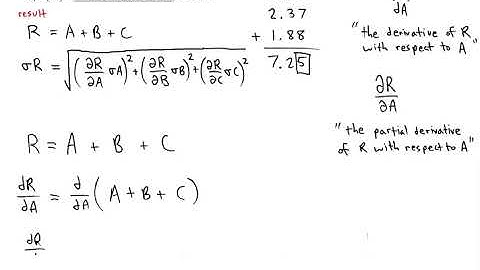 result
R = A + B + C
σR = √((∂R/∂A σA)² + (∂R/∂B σB)² + (∂R/∂C σC)²)
2.37
+ 1.88
7.25
dA
"the derivative of R
with respect to A"
∂R/∂A
"the partial derivative
of R with respect to A"
R = A + B + C
dR/dA = d/dA (A + B + C)
dR